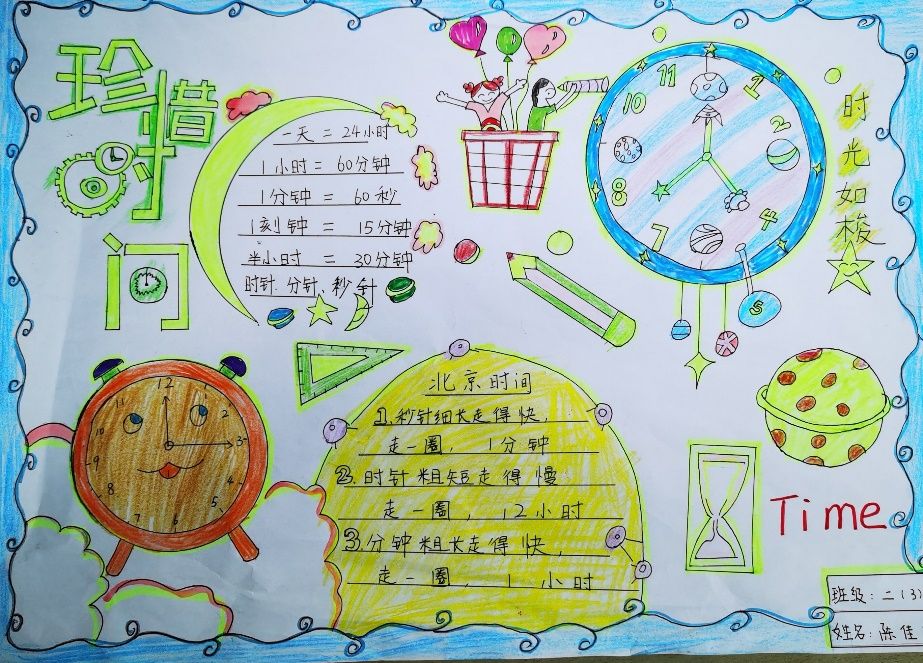 珍惜
时间
一天 = 24小时
1小时 = 60分钟
1分钟 = 60秒
1刻钟 = 15分钟
半小时 = 30分钟
时针.分针.秒针
11 1
10 2
8 4
7 5
时光如梭
12
11
10 2
9 3
8 4
7 5
6
北京时间
1.秒针细长走得快,
走一圈, 1分钟
2.时针粗短走得慢
走一圈, 12小时
3.分钟粗长走得快,
走一圈, 1小时
Time
班级:二(3)
姓名:陈佳